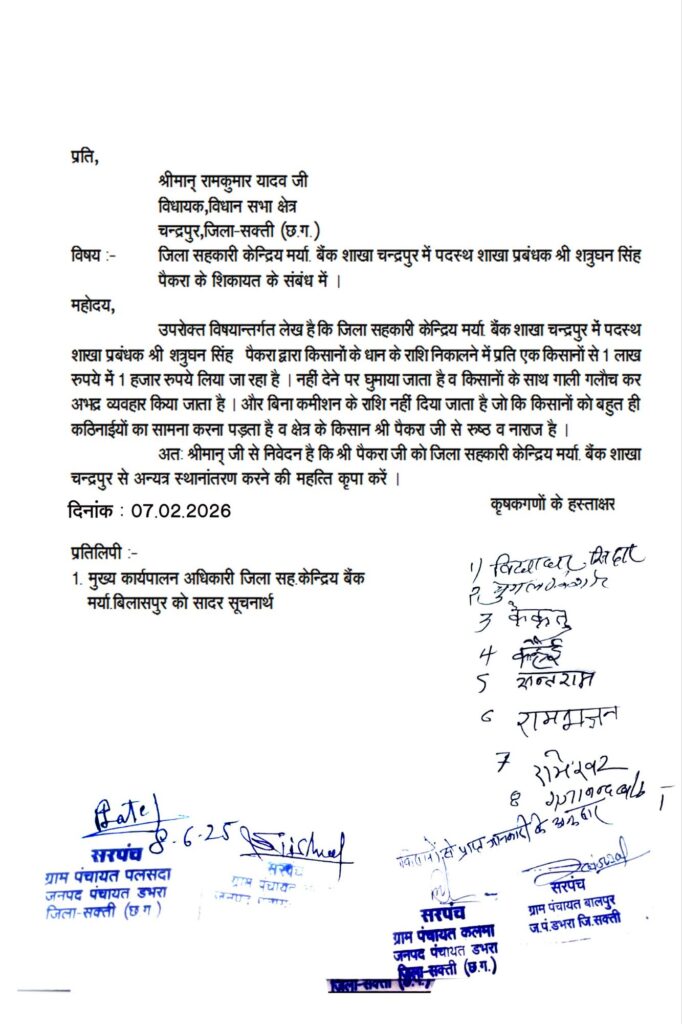 प्रति,
श्रीमान् रामकुमार यादव जी
विधायक,विधान सभा क्षेत्र
चन्द्रपुर,जिला-सक्ती (छ.ग.)
विषय :- जिला सहकारी केन्द्रिय मर्या. बैंक शाखा चन्द्रपुर में पदस्थ शाखा प्रबंधक श्री शत्रुघन सिंह
पैकरा के शिकायत के संबंध में ।
महोदय,
उपरोक्त विषयान्तर्गत लेख है कि जिला सहकारी केन्द्रिय मर्या. बैंक शाखा चन्द्रपुर में पदस्थ
शाखा प्रबंधक श्री शत्रुघन सिंह पैकरा द्वारा किसानों के धान के राशि निकालने में प्रति एक किसानों से 1 लाख
रुपये में 1 हजार रुपये लिया जा रहा है । नहीं देने पर घुमाया जाता है व किसानों के साथ गाली गलौच कर
अभद्र व्यवहार किया जाता है । और बिना कमीशन के राशि नहीं दिया जाता है जो कि किसानों को बहुत ही
कठिनाईयों का सामना करना पड़ता है व क्षेत्र के किसान श्री पैकरा जी से रुष्ठ व नाराज है ।
अतः श्रीमान् जी से निवेदन है कि श्री पैकरा जी को जिला सहकारी केन्द्रिय मर्या. बैंक शाखा
चन्द्रपुर से अन्यत्र स्थानांतरण करने की महत्ति कृपा करें ।
दिनांक : 07.02.2026
कृषकगणों के हस्ताक्षर
प्रतिलिपी :-
1. मुख्य कार्यपालन अधिकारी जिला सह.केन्द्रिय बैंक
मर्या.बिलासपुर को सादर सूचनार्थ
1)
2,
3
4
5 सन्तराम
6 रामभजन
7
8
से प्राप्त जानकारी के अनुसार
8.6.25
सरपंच
ग्राम पंचायत पलसदा
जनपद पंचायत डभरा
जिला-सक्ती (छ.ग.)
सरपंच
ग्राम पंचायत
सरपंच
ग्राम पंचायत कलमा
जनपद पंचायत डभरा
जिला-सक्ती (छ.ग.)
सरपंच
ग्राम पंचायत बालपुर
ज.पं.डभरा जि.सक्ती
जिला-सक्ती (छ.ग.)